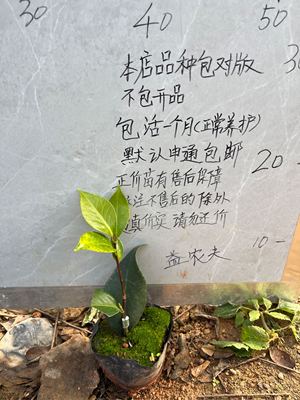 30 40 50
本店品种包对版
30
不包开品
包活一个月(正常养护)
默认申通包邮
20
正价苗有售后保障
注不售后的除外
真价实 请勿还价
益农夫
10